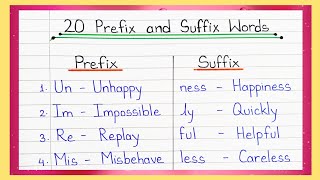 20 Prefix and Suffix Words
Prefix Suffix
1. Un - Unhappy ness - Happiness
2. Im - Impossible ly - Quickly
3. Re - Replay ful - Helpful
4. Mis - Misbehave less - Careless